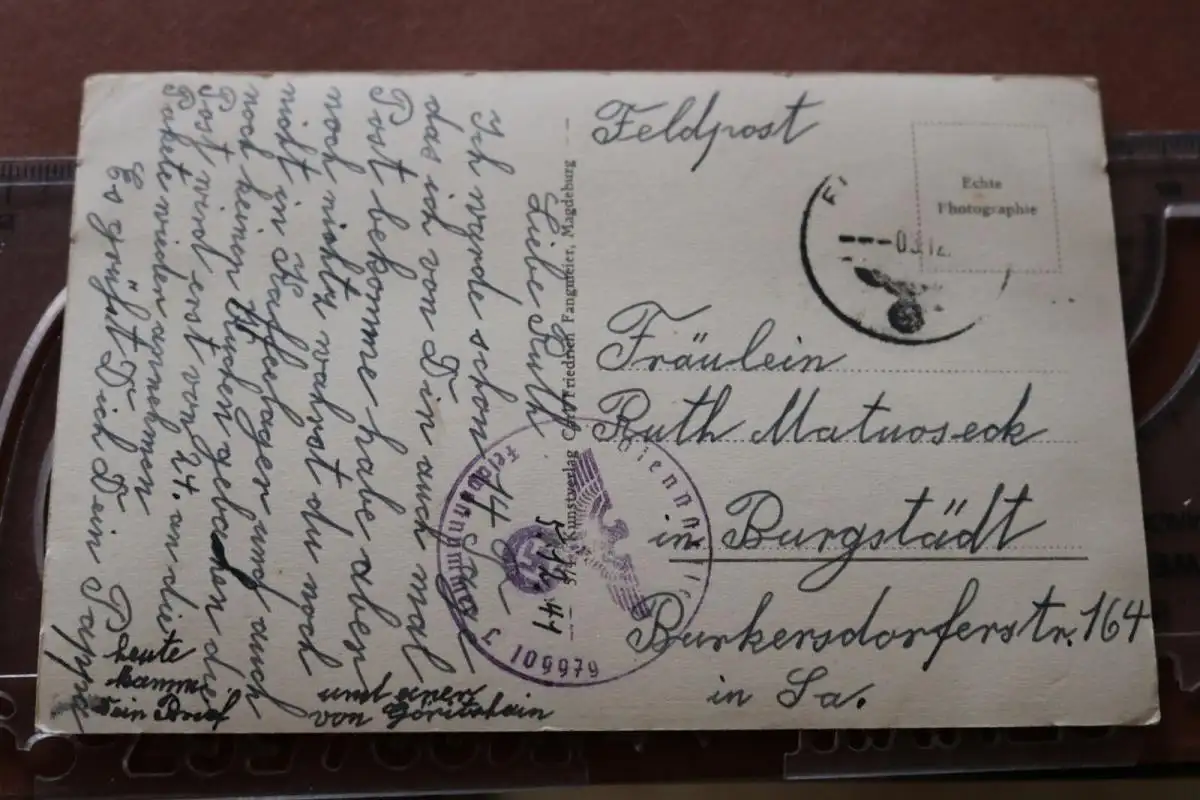 Feldpost
Echte
Photographie
03.12.
Fräulein
Ruth Matuoseck
in Burgstädt
Burkersdorferstr. 164
in Sa.
Friedrich Fangmeier, Magdeburg
Kunstverlag
Dienst
Feldp
105979
5.12.41
Liebe Ruth
Ich warde schon 14 Tage
das ich von Dir auch mal
Post bekomme habe aber
noch nichts warst du noch
nicht in und auch
noch keinen Kuchen gebacken die
Post wird erst von 24. an die
Pakete wieder annehmen
Es grüßt Dich Dein Pappa
heute
kamm
Dein Brief
und einer
von Göritzhain